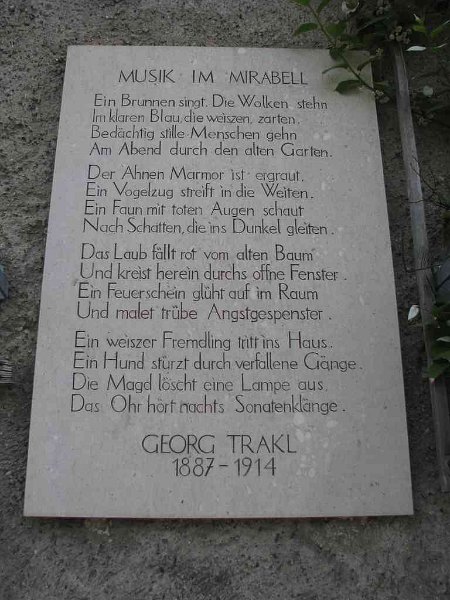 MUSIK IM MIRABELL
Ein Brunnen singt. Die Wolken stehn
Im klaren Blau, die weiszen, zarten.
Bedächtig stille Menschen gehn
Am Abend durch den alten Garten.
Der Ahnen Marmor ist ergraut.
Ein Vogelzug streift in die Weiten.
Ein Faun mit toten Augen schaut
Nach Schatten, die ins Dunkel gleiten.
Das Laub fällt rot vom alten Baum
Und kreist herein durchs offne Fenster.
Ein Feuerschein glüht auf im Raum
Und malet trübe Angstgespenster.
Ein weiszer Fremdling tritt ins Haus.
Ein Hund stürzt durch verfallene Gänge.
Die Magd löscht eine Lampe aus.
Das Ohr hört nachts Sonatenklänge.
GEORG TRAKL
1887-1914